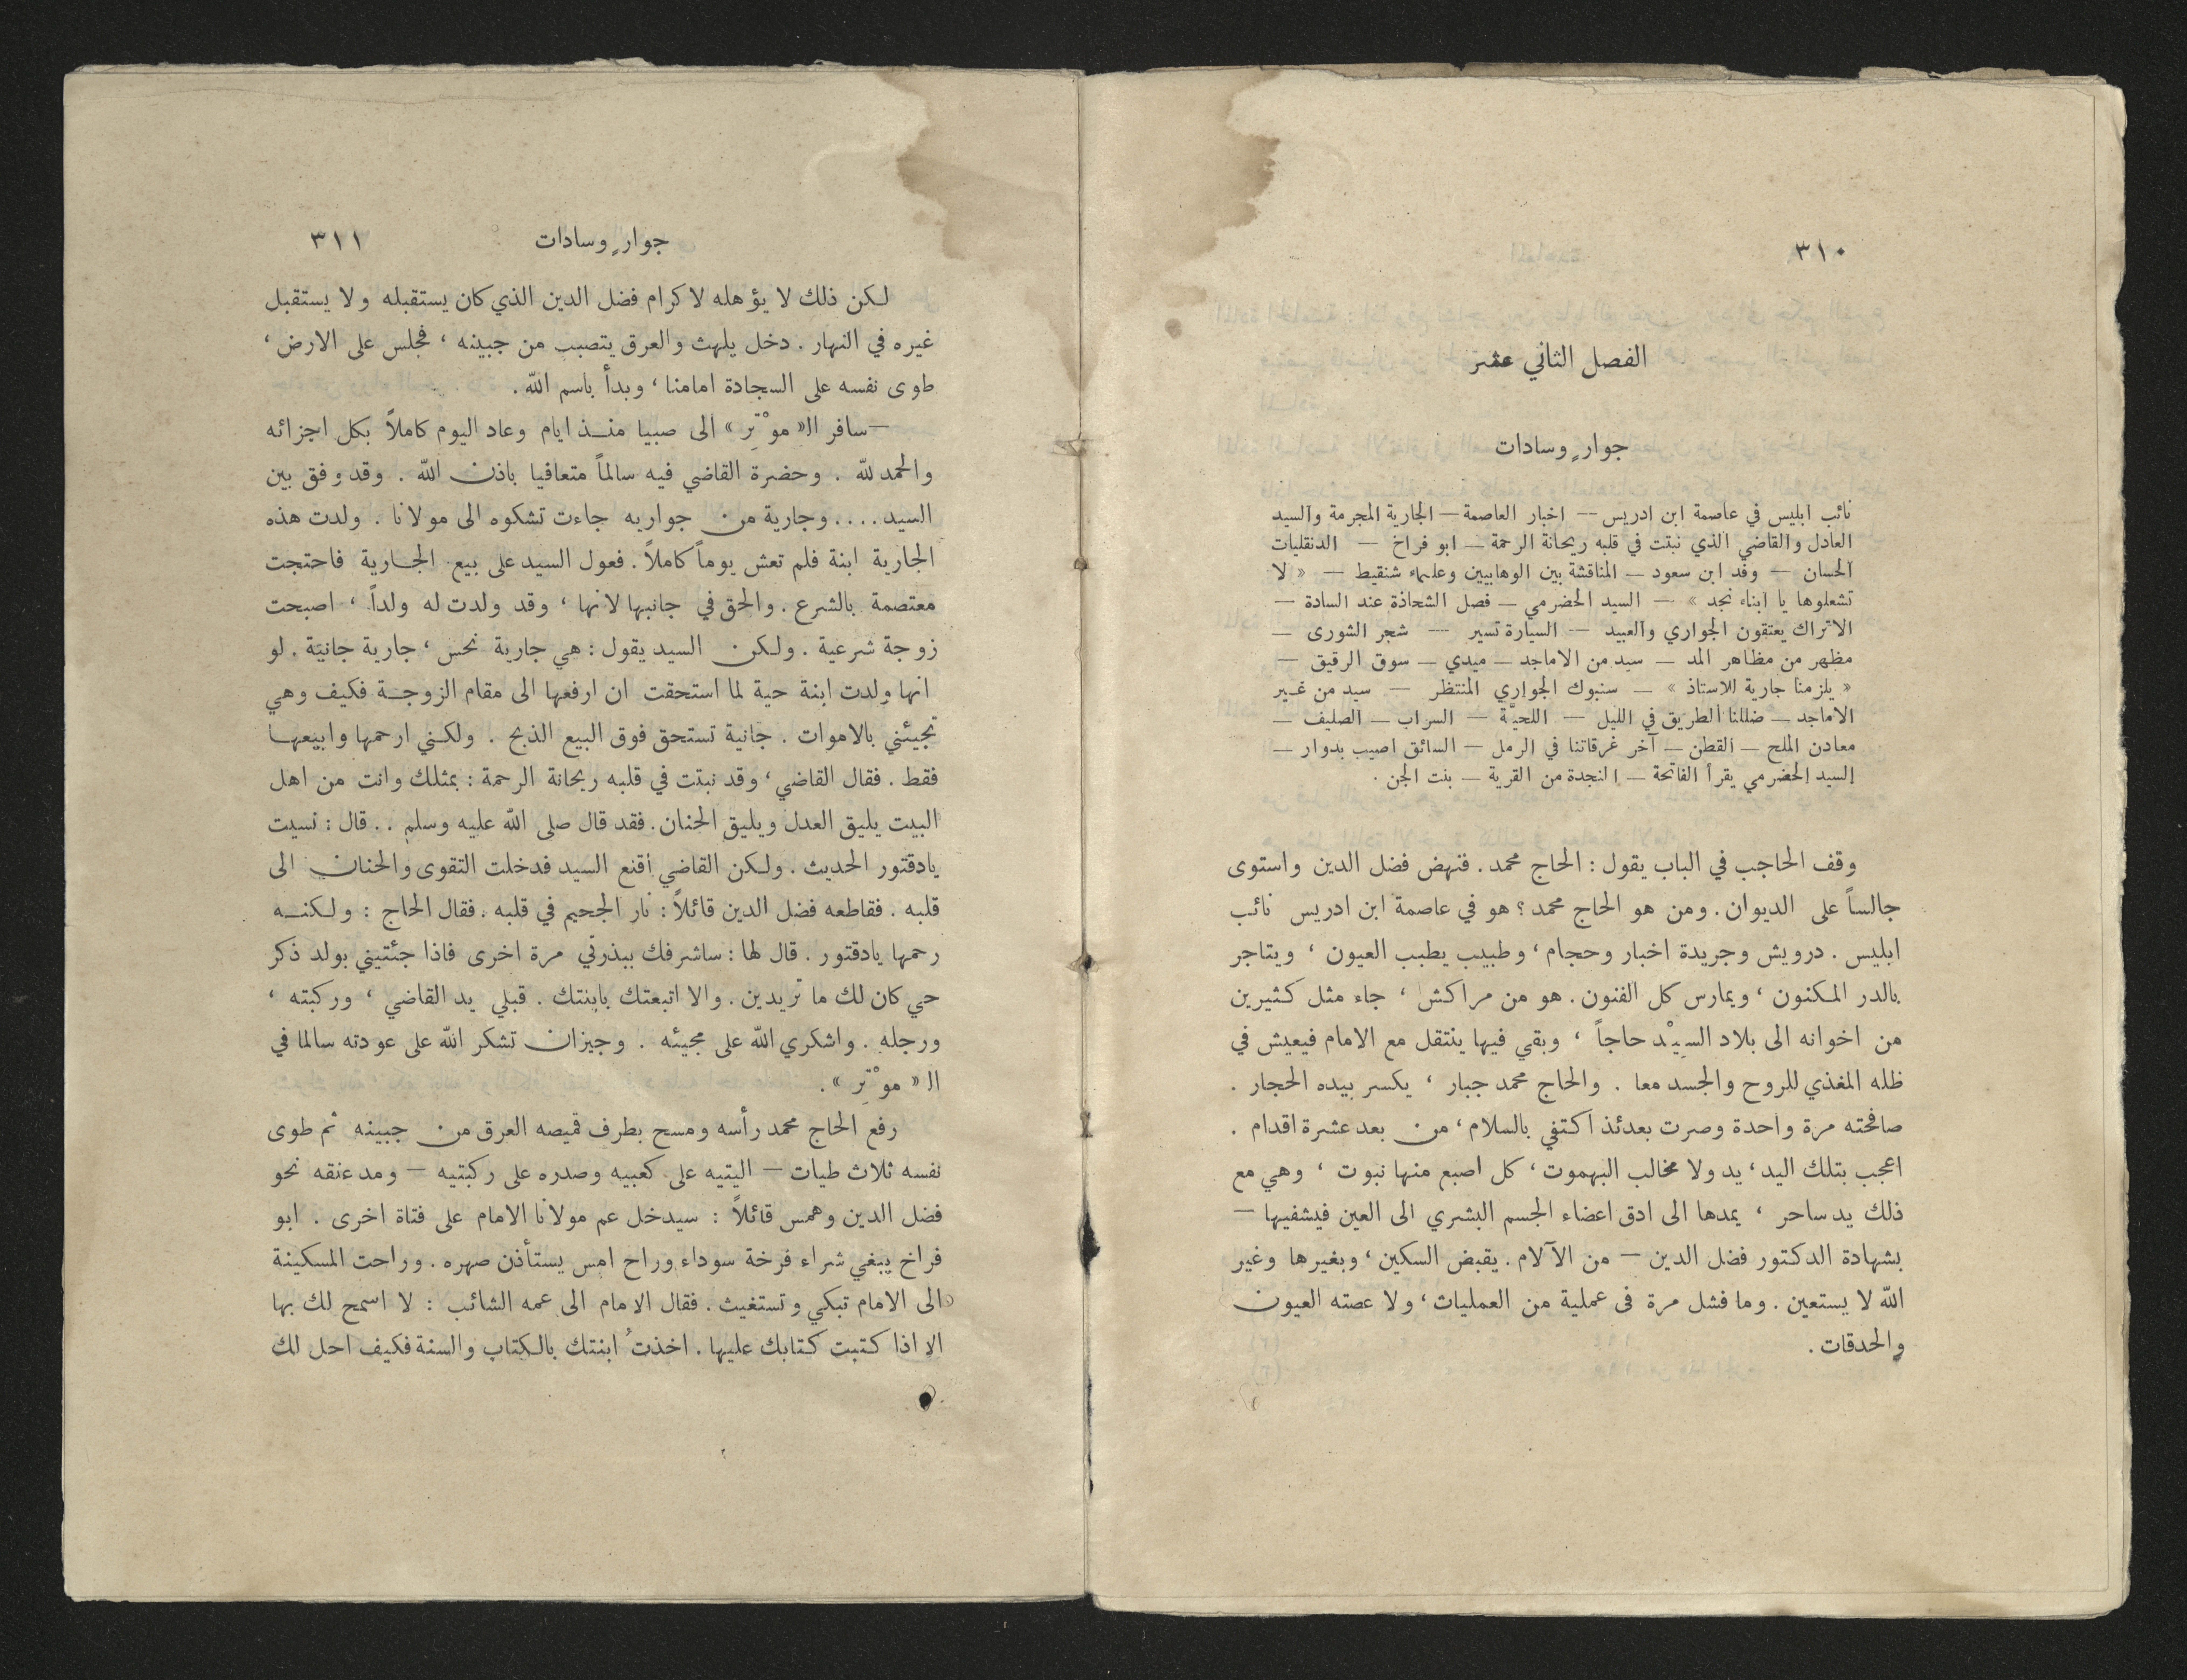 ٣١٠
الفصل الثاني عشر
جوارٍ وسادات
نائب ابليس في عاصمة ابن ادريس — اخبار العاصمة — الجارية المجرمة والسيد
العادل والقاضي الذي نبتت في قلبه ريحانة الرحمة — ابو فراخ — الدنقليات
الحسان — وفد ابن سعود — المناقشة بين الوهابيين وعلماء شنقيط — « لا
تشعلوها يا ابناء نجد » — السيد الحضرمي — فصل الشحاذة عند السادة —
الاتراك يعتقون الجواري والعبيد — السيارة تسير — شجر الشورى —
مظهر من مظاهر المد — سيد من الاماجد — ميدي — سوق الرقيق —
« يلزمنا جارية للاستاذ » — سنبوك الجواري المنتظر — سيد من غير
الاماجد — ضللنا الطريق في الليل — اللحيَّة — السراب — الصليف —
معادن الملح — القطن — آخر غرقاتنا في الرمل — السائق اصيب بدوار —
السيد الحضرمي يقرأ الفاتحة — النجدة من القرية — بنت الجن .
وقف الحاجب في الباب يقول : الحاج محمد . فنهض فضل الدين واستوى
جالساً على الديوان . ومن هو الحاج محمد ؟ هو في عاصمة ابن ادريس نائب
ابليس . درويش وجريدة اخبار وحجام ، وطبيب يطبب العيون ، ويتاجر
بالدر المكنون ، ويمارس كل الفنون . هو من مراكش ، جاء مثل كثيرين
من اخوانه الى بلاد السِيْد حاجاً ، وبقي فيها ينتقل مع الامام فيعيش في
ظله المغذي للروح والجسد معا . والحاج محمد جبار ، يكسر بيده الحجار .
صافحته مرة واحدة وصرت بعدئذ اكتفي بالسلام ، من بعد عشرة اقدام .
اعجب بتلك اليد ، يد ولا مخالب البهموت ، كل اصبع منها نبوت ، وهي مع
ذلك يد ساحر ، يمدها الى ادق اعضاء الجسم البشري الى العين فيشفيها —
بشهادة الدكتور فضل الدين — من الآلام . يقبض السكين ، وبغيرها وغير
الله لا يستعين . وما فشل مرة في عملية من العمليات ، ولا عصته العيون
والحدقات .
جوارٍ وسادات ٣١١
لكن ذلك لا يؤهله لاكرام فضل الدين الذي كان يستقبله ولا يستقبل
غيره في النهار . دخل يلهث والعرق يتصبب من جبينه ، فجلس على الارض ،
طوى نفسه على السجادة امامنا ، وبدأ باسم الله .
— سافر ال« موْتِر » الى صبيا منذ ايام وعاد اليوم كاملاً بكل اجزائه
والحمد لله . وحضرة القاضي فيه سالماً متعافيا باذن الله . وقد وفق بين
السيد .... وجارية من جواريه جاءت تشكوه الى مولانا . ولدت هذه
الجارية ابنة فلم تعش يوماً كاملاً . فعول السيد على بيع الجارية فاحتجت
معتصمة بالشرع . والحق في جانبها لانها ، وقد ولدت له ولداً ، اصبحت
زوجة شرعية . ولكن السيد يقول : هي جارية نحس ، جارية جانية . لو
انها ولدت ابنة حية لما استحقت ان ارفعها الى مقام الزوجة فكيف وهي
تجيئني بالاموات . جانية تستحق فوق البيع الذبح . ولكني ارحمها وابيعها
فقط . فقال القاضي ، وقد نبتت في قلبه ريحانة الرحمة : بمثلك وانت من اهل
البيت يليق العدل ويليق الحنان . فقد قال صلى الله عليه وسلم .. قال : نسيت
يادقتور الحديث . ولكن القاضي اقنع السيد فدخلت التقوى والحنان الى
قلبه . فقاطعه فضل الدين قائلاً : نار الجحيم في قلبه . فقال الحاج : ولكنه
رحمها يادقتور . قال لها : ساشرفك ببذرتي مرة اخرى فاذا جئتيني بولد ذكر
حي كان لك ما تريدين . والا اتبعتك بابنتك . قبلي يد القاضي ، وركبته ،
ورجله . واشكري الله على مجيئه . وجيزان تشكر الله على عودته سالما في
ال« موْتِر » .
رفع الحاج محمد رأسه ومسح بطرف قميصه العرق من جبينه ثم طوى
نفسه ثلاث طيات — اليتيه على كعبيه وصدره على ركبتيه — ومد عنقه نحو
فضل الدين وهمس قائلاً : سيدخل عم مولانا الامام على فتاة اخرى . ابو
فراخ يبغي شراء فرخة سوداء وراح امس يستأذن صهره . وراحت المسكينة
الى الامام تبكي وتستغيث . فقال الامام الى عمه الشائب : لا اسمح لك بها
الا اذا كتبت كتابك عليها . اخذتُ ابنتك بالكتاب والسنة فكيف احل لك